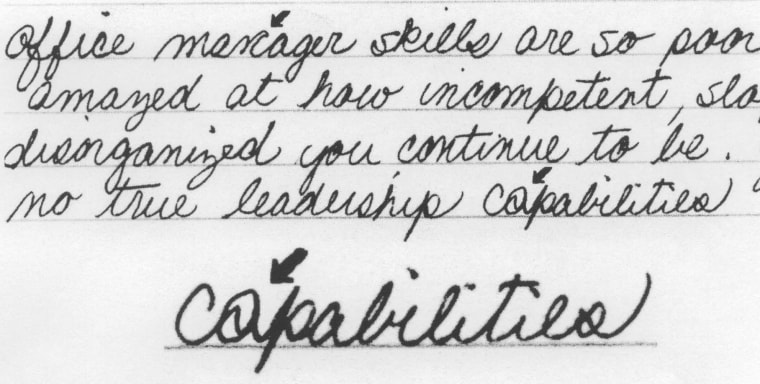 office manager skills are so poor
amazed at how incompetent,
disorganized you continue to be.
no true leadership capabilities
capabilities